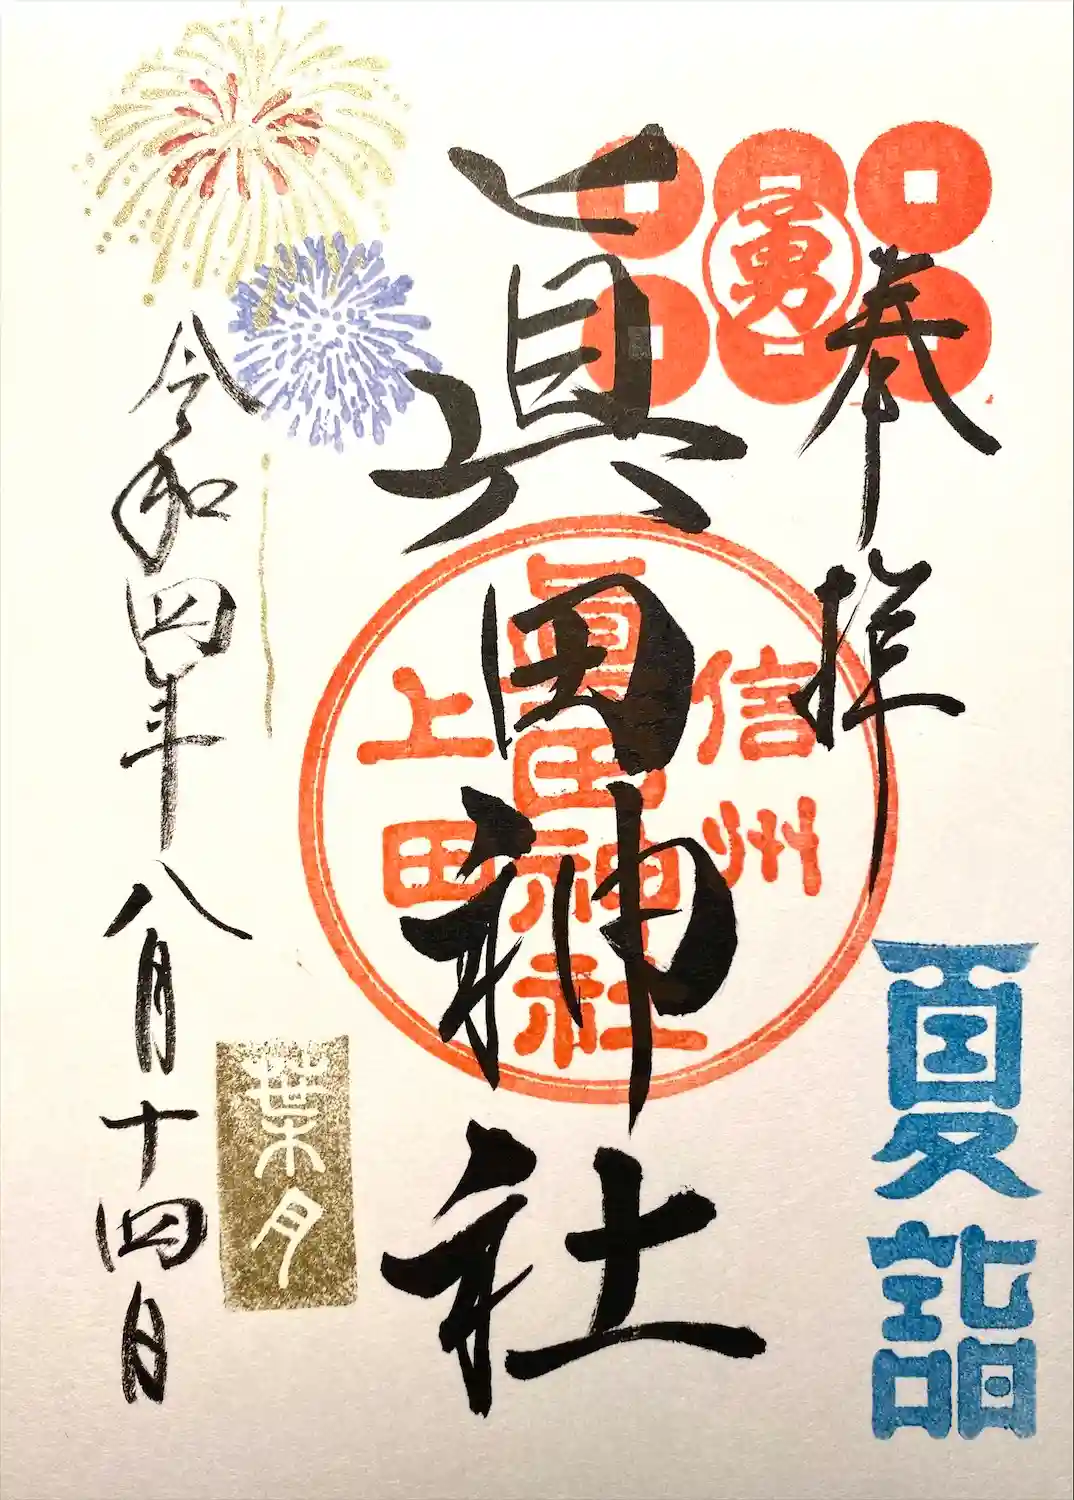 奉拝
勇
夏詣
眞田神社
信州
眞田神社
上田
令和四年八月十四日
葉月